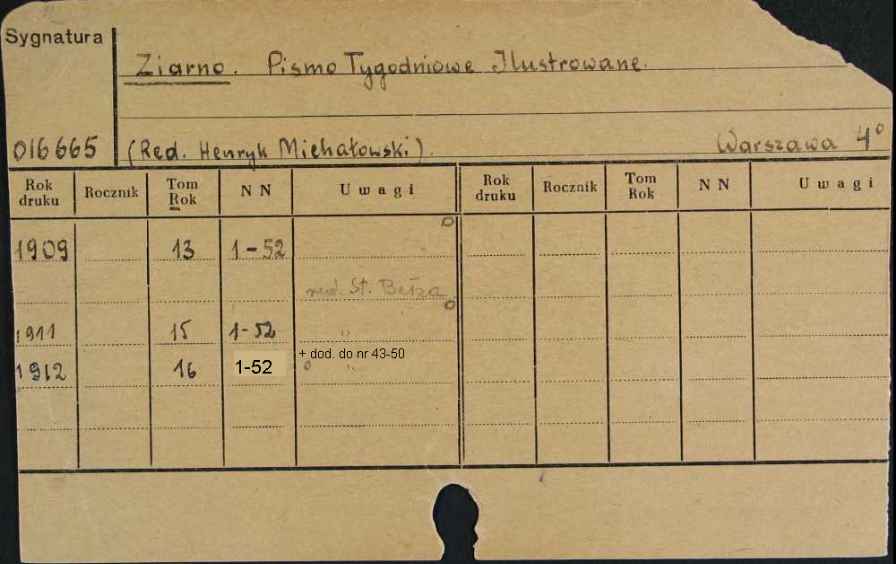 Sygnatura
Ziarno. Pismo Tygodniowe Ilustrowane.
016665 (Red. Henryk Michałowski). Warszawa 4°
Rok druku Rocznik Tom Rok N N Uwagi Rok druku Rocznik Tom Rok N N Uwagi
1909 13 1-52
red. St. Bełza
1911 15 1-52 "
+ dod. do nr 43-50
1912 16 1-52 "